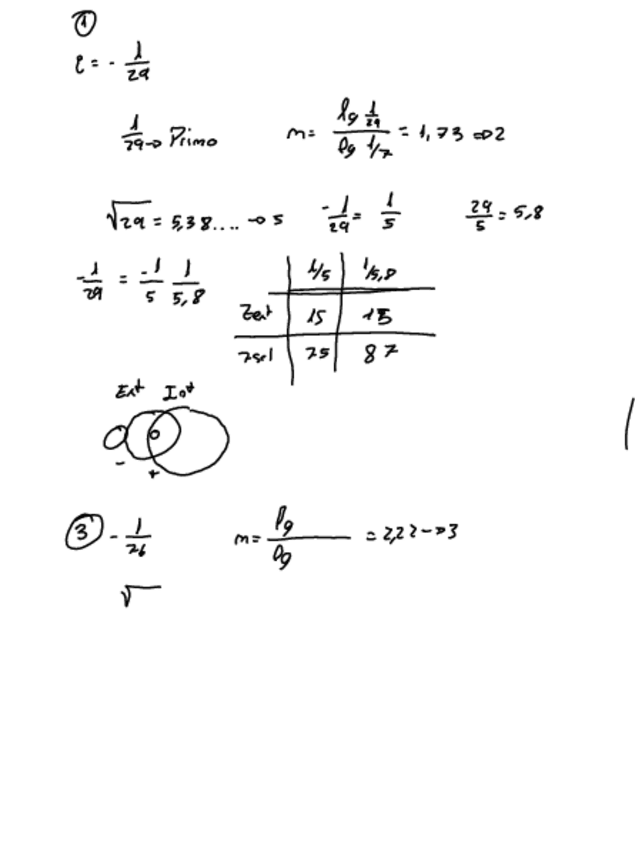 ①
i = - 1/29
1/29 → Primo m = lg 1/29 / lg 1/7 = 1,73 ⇒ 2
√29 = 5,38.... → 5 -1/29 = 1/5 29/5 = 5,8
-1/29 = -1/5 1/5,8
1/5 1/5,8
Zent 15 15
Zsal 75 87
Ext Int
- +
③ - 1/26 m = lg / lg = 2,22 → 3
√